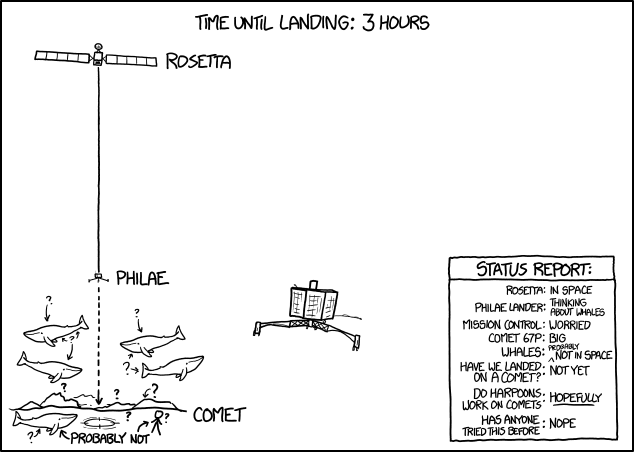 TIME UNTIL LANDING: 3 HOURS
ROSETTA
PHILAE
?
?
?
?
?
?
?
?
?
?
?
?
COMET
?
PROBABLY NOT
STATUS REPORT:
ROSETTA: IN SPACE
PHILAE LANDER: THINKING
ABOUT WHALES
MISSION CONTROL: WORRIED
COMET 67P: BIG
WHALES: PROBABLY NOT IN SPACE
HAVE WE LANDED
ON A COMET?: NOT YET
DO HARPOONS
WORK ON COMETS: HOPEFULLY
HAS ANYONE
TRIED THIS BEFORE: NOPE